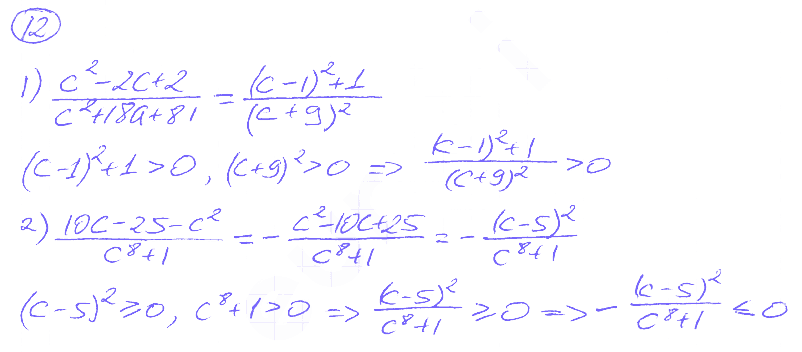 12
1) (c² - 2c + 2)/(c² + 18a + 81) = ((c - 1)² + 1)/((c + 9)²)
(c - 1)² + 1 > 0, (c + 9)² > 0 => ((c - 1)² + 1)/((c + 9)²) > 0
2) (10c - 25 - c²)/(c⁸ + 1) = - (c² - 10c + 25)/(c⁸ + 1) = - (c - 5)²/(c⁸ + 1)
(c - 5)² ≥ 0, c⁸ + 1 > 0 => (c - 5)²/(c⁸ + 1) ≥ 0 => - (c - 5)²/(c⁸ + 1) ≤ 0